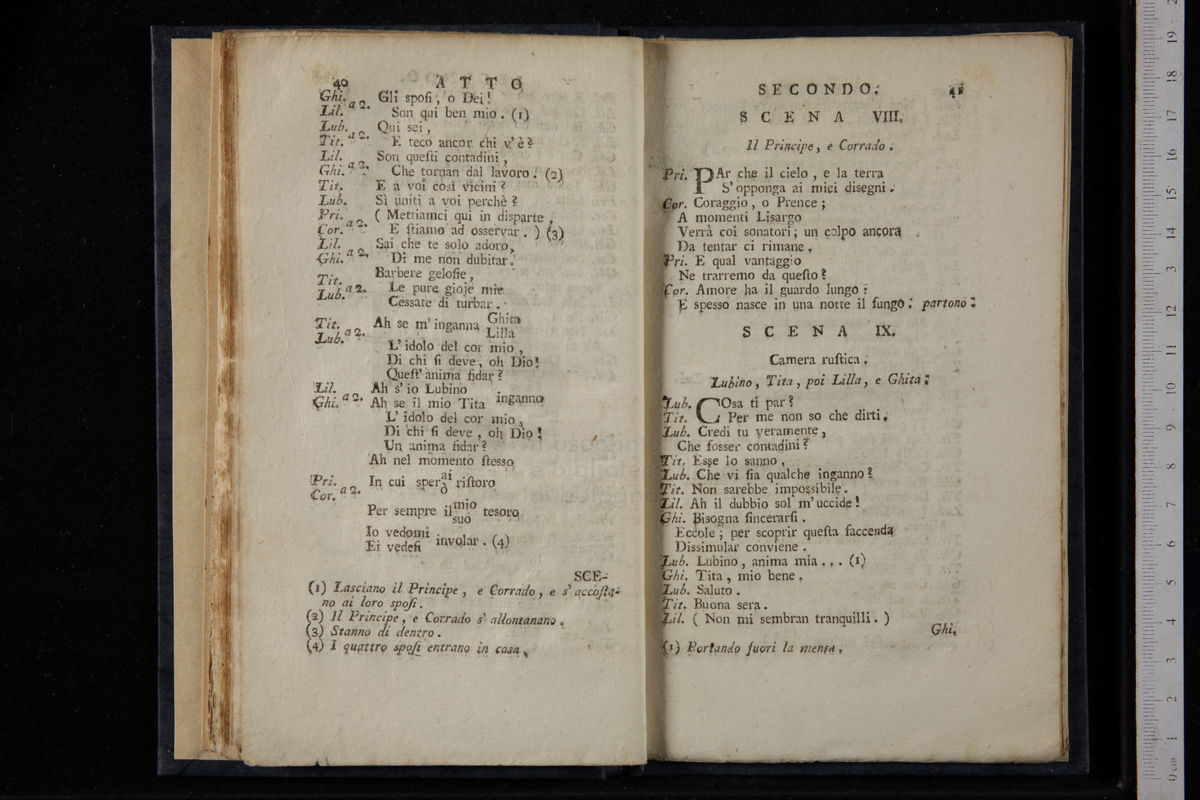 40 ATTO
Ghi. a 2. Gli sposi, o Dei!
Lil. Son qui ben mio. (1)
Lub. a 2. Qui sei,
Tit. E teco ancor chi v'è?
Lil. a 2. Son questi contadini,
Ghi. Che tornan dal lavoro. (2)
Tit. E a voi così vicini?
Lub. Sì uniti a voi perchè?
Pri. a 2. (Mettiamci qui in disparte,
Cor. E stiamo ad osservar.) (3)
Lil. a 2. Sai che te solo adoro,
Ghi. Di me non dubitar.
Tit. a 2. Barbere gelosie,
Lub. Le pure gioje mie
Cessate di turbar.
Tit. a 2. Ah se m'inganna Ghita
Lub. Lilla
L'idolo del cor mio,
Di chi si deve, oh Dio!
Quest'anima fidar?
Lil. a 2. Ah s'io Lubino
Ghi. Ah se il mio Tita inganno
L'idolo del cor mio,
Di chi si deve, oh Dio!
Un anima fidar?
Ah nel momento stesso
Pri. a 2. In cui sperai ristoro
Cor. o
Per sempre il mio tesoro
suo
Io vedomi involar. (4)
Ei vedesi
SCE-
(1) Lasciano il Principe, e Corrado, e s'accosta-
no ai loro sposi.
(2) Il Principe, e Corrado s'allontanano.
(3) Stanno di dentro.
(4) I quattro sposi entrano in casa.
SECONDO. 41
SCENA VIII.
Il Principe, e Corrado.
Pri. PAr che il cielo, e la terra
S'opponga ai miei disegni.
Cor. Coraggio, o Prence;
A momenti Lisargo
Verrà coi sonatori; un colpo ancora
Da tentar ci rimane.
Pri. E qual vantaggio
Ne trarremo da questo?
Cor. Amore ha il guardo lungo:
E spesso nasce in una notte il fungo. partono.
SCENA IX.
Camera rustica.
Lubino, Tita, poi Lilla, e Ghita.
Lub. COsa ti par?
Tit. Per me non so che dirti.
Lub. Credi tu veramente,
Che fosser contadini?
Tit. Esse lo sanno.
Lub. Che vi sia qualche inganno?
Tit. Non sarebbe impossibile.
Lil. Ah il dubbio sol m'uccide!
Ghi. Bisogna sincerarsi.
Eccole; per scoprir questa faccenda
Dissimular conviene.
Lub. Lubino, anima mia... (1)
Ghi. Tita, mio bene.
Lub. Saluto.
Tit. Buona sera.
Lil. (Non mi sembran tranquilli.)
Ghi.
(1) Portando fuori la mensa.